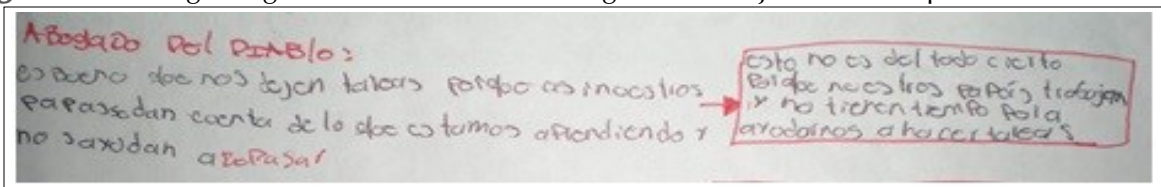 ABogado Del DIABlo:
es bueno que nos dejen tareas porque asi nuestros
papas se dan cuenta de lo que estamos aprendiendo y
no sayudan arepasar
esto no es del todo cierto
porque nuestros papas trabajan
y no tienen tiempo para
ayudarnos a hacer tareas